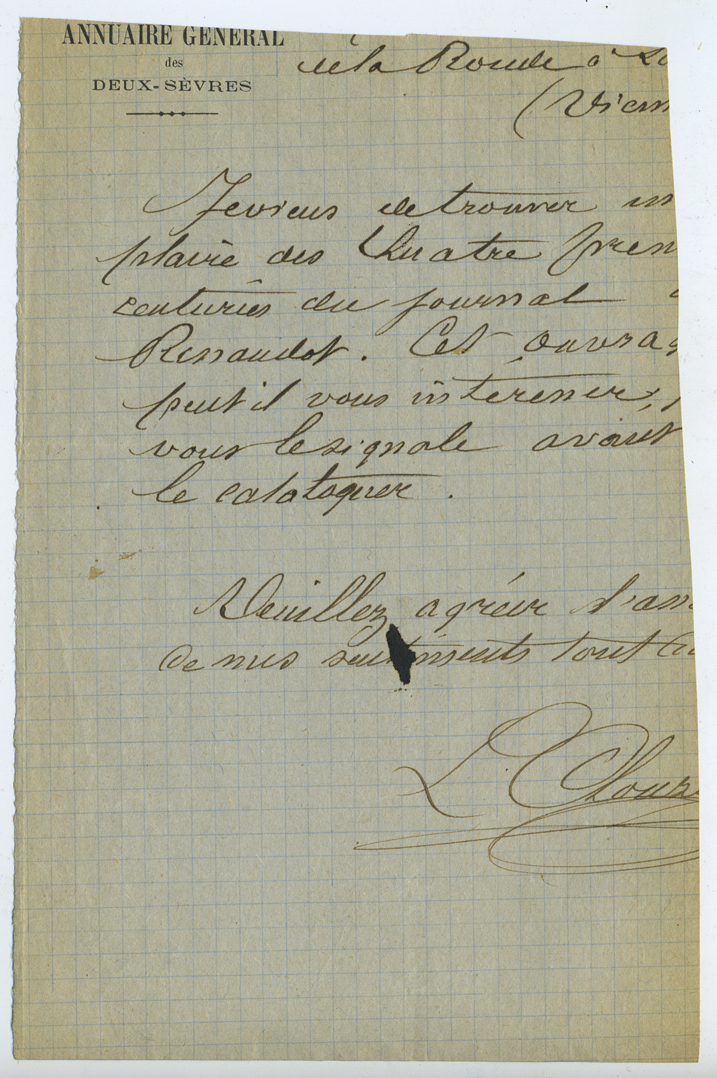 ANNUAIRE GÉNÉRAL
des
DEUX-SÈVRES
de la Roude à Lo
(Vienn
Je viens de trouver un
plaire des Quatre prem
centuries du journal
Renaudot. Cet ouvrag
peut il vous intéresser,
vous le signale avant
le cataloguer.
Veuillez agréer l'ass
de mes sentiments tout
L. Clouz